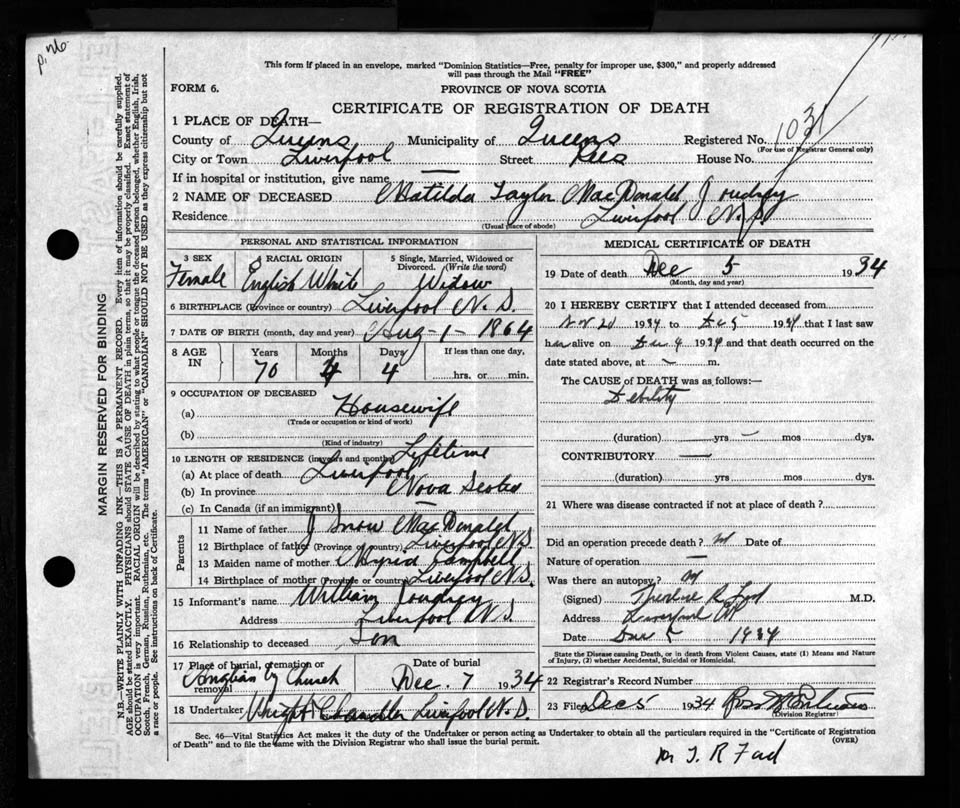 p. 26
This form if placed in an envelope, marked "Dominion Statistics—Free, penalty for improper use, $300," and properly addressed
will pass through the Mail "FREE"
FORM 6. PROVINCE OF NOVA SCOTIA
CERTIFICATE OF REGISTRATION OF DEATH
1 PLACE OF DEATH—
County of Queens Municipality of Queens Registered No. 1031
(For use of Registrar General only)
City or Town Liverpool Street House No.
If in hospital or institution, give name —
2 NAME OF DECEASED Matilda Taylor MacDonald Joudrey
Residence Liverpool N.S.
(Usual place of abode)
MARGIN RESERVED FOR BINDING
N.B.—WRITE PLAINLY WITH UNFADING INK—THIS IS A PERMANENT RECORD. Every item of information should be carefully supplied.
AGE should be stated EXACTLY. PHYSICIANS should STATE CAUSE OF DEATH in plain terms, so that it may be properly classified. Exact statement of
OCCUPATION is very important. RACIAL ORIGIN will be described by stating to what people or tongue the deceased person belonged, whether English, Irish,
Scotch, French, German, Russian, Ruthenian, etc. The terms "AMERICAN" or "CANADIAN" SHOULD NOT BE USED as they express citizenship but not
a race or people. See instructions on back of Certificate.
PERSONAL AND STATISTICAL INFORMATION
3 SEX 4 RACIAL ORIGIN 5 Single, Married, Widowed or
Divorced. (Write the word)
Female English White Widow
6 BIRTHPLACE (Province or country) Liverpool N.S.
7 DATE OF BIRTH (month, day and year) Aug - 1 - 1864
8 AGE IN Years Months Days If less than one day,
70 4 4 hrs. or min.
9 OCCUPATION OF DECEASED
(a) Housewife
(Trade or occupation or kind of work)
(b)
(Kind of industry)
10 LENGTH OF RESIDENCE (in years and months) Lifetime
(a) At place of death Liverpool
(b) In province Nova Scotia
(c) In Canada (if an immigrant) —
Parents
11 Name of father J Snow MacDonald
12 Birthplace of father (Province or country) Liverpool N.S.
13 Maiden name of mother Campbell
14 Birthplace of mother (Province or country) Liverpool N.S.
15 Informant's name William Joudrey
Address Liverpool N.S.
16 Relationship to deceased Son
17 Place of burial, cremation or removal Date of burial
Church Dec. 7 1934
18 Undertaker Wright Chandler Liverpool N.S.
MEDICAL CERTIFICATE OF DEATH
19 Date of death Dec 5 1934
(Month, day and year)
20 I HEREBY CERTIFY that I attended deceased from
Nov 20 1934 to Dec 5 1934 that I last saw
her alive on Dec 4 1934 and that death occurred on the
date stated above, at — m.
The CAUSE of DEATH was as follows:—
Debility
(duration) — yrs — mos dys.
CONTRIBUTORY —
(duration) yrs mos dys.
21 Where was disease contracted if not at place of death?
Did an operation precede death? Date of
Nature of operation —
Was there an autopsy?
(Signed) M.D.
Address Liverpool
Date Dec 5 1934
State the Disease causing Death, or in death from Violent Causes, state (1) Means and Nature
of Injury, (2) whether Accidental, Suicidal or Homicidal.
22 Registrar's Record Number
23 Filed Dec 5 1934
(Division Registrar)
Sec. 46—Vital Statistics Act makes it the duty of the Undertaker or person acting as Undertaker to obtain all the particulars required in the "Certificate of Registration
of Death" and to file the same with the Division Registrar who shall issue the burial permit. (OVER)
T. R. Ford